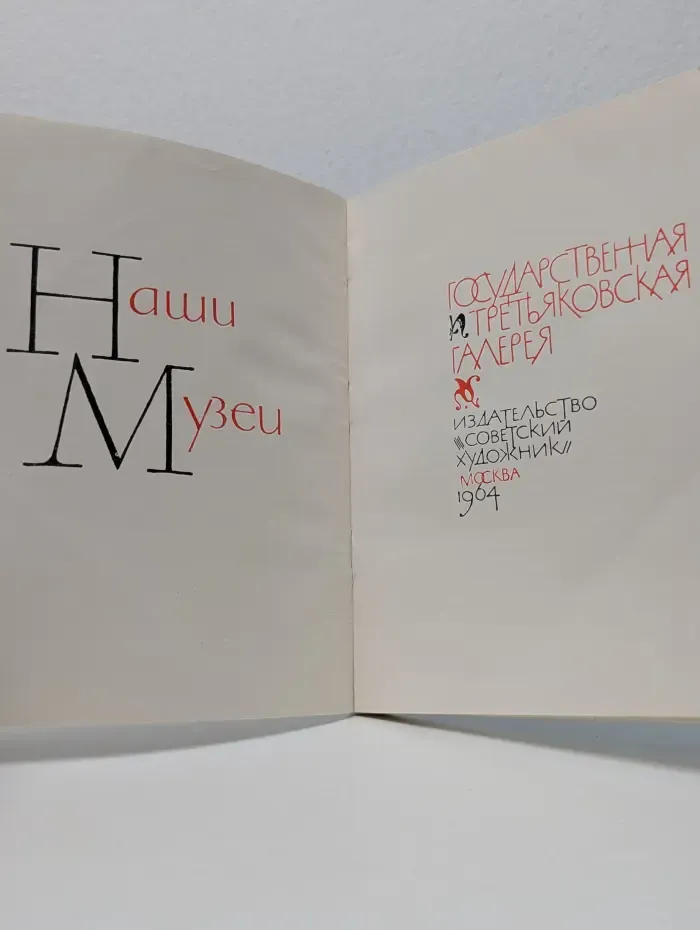 Наши
Музеи
ГОСУДАРСТВЕННАЯ
ТРЕТЬЯКОВСКАЯ
ГАЛЕРЕЯ
ИЗДАТЕЛЬСТВО
«СОВЕТСКИЙ
ХУДОЖНИК»
МОСКВА
1964